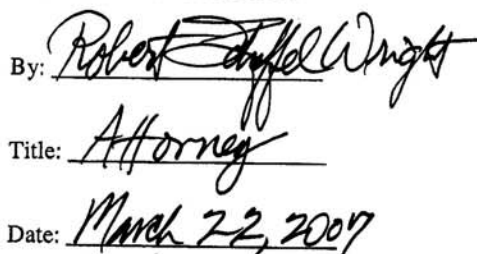 By: Robert Wright
Title: Attorney
Date: March 22, 2007